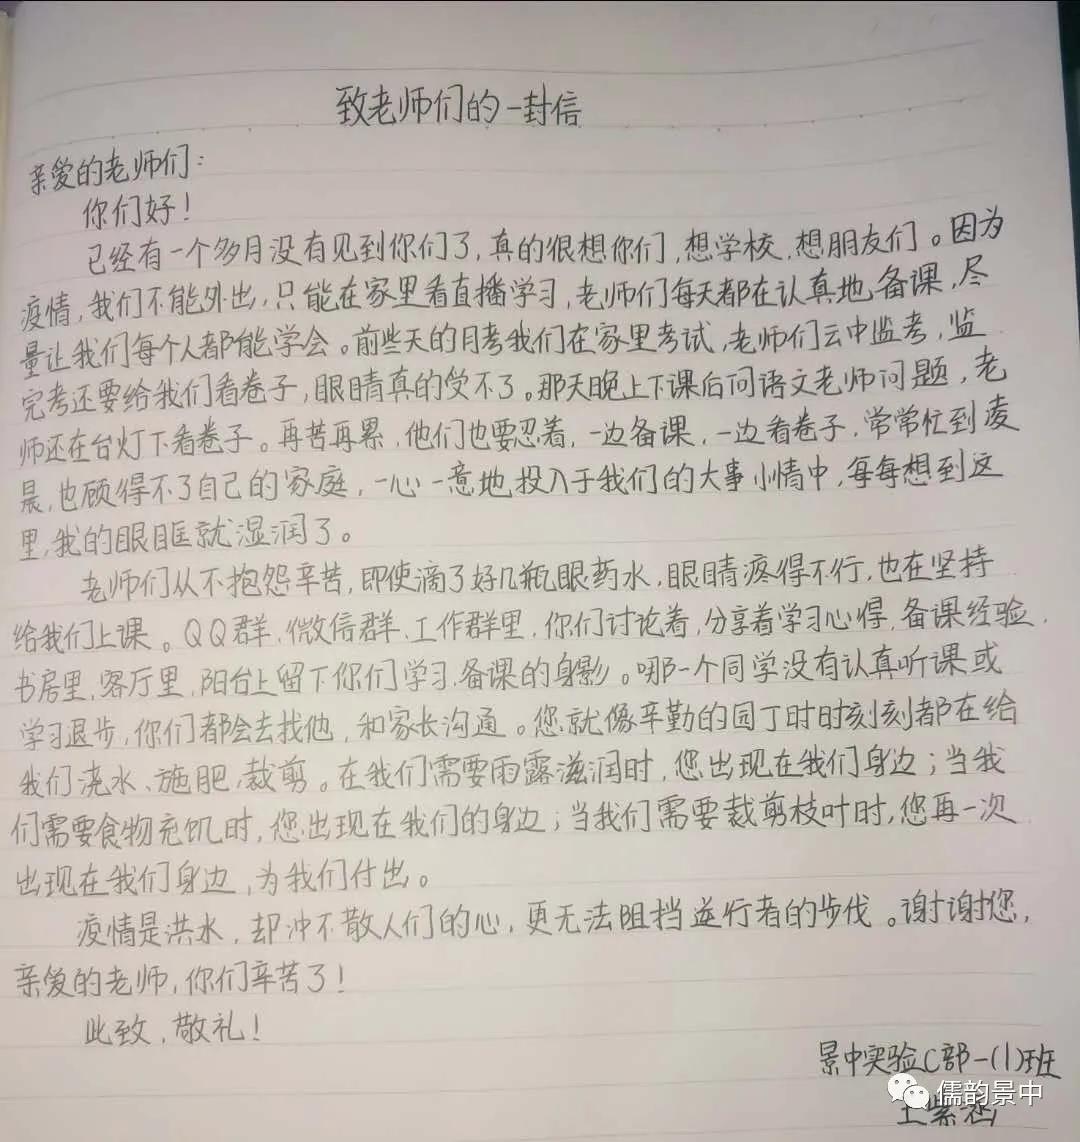 致老师们的一封信
亲爱的老师们：
你们好！
已经有一个多月没有见到你们了，真的很想你们，想学校，想朋友们。因为
疫情，我们不能外出，只能在家里看直播学习，老师们每天都在认真地备课，尽
量让我们每个人都能学会。前些天的月考我们在家里考试，老师们云中监考，监
完考还要给我们看卷子，眼睛真的受不了。那天晚上下课后问语文老师问题，老
师还在台灯下看卷子。再苦再累，他们也要忍着，一边备课，一边看卷子，常常忙到凌
晨，也顾得不了自己的家庭，一心一意地投入于我们的大事小情中，每每想到这
里，我的眼眶就湿润了。
老师们从不抱怨辛苦，即使滴了好几瓶眼药水，眼睛疼得不行，也在坚持
给我们上课。QQ群、微信群、工作群里，你们讨论着，分享着学习心得，备课经验，
书房里，客厅里，阳台上留下你们学习、备课的身影。哪一个同学没有认真听课或
学习退步，你们都会去找他，和家长沟通。您就像辛勤的园丁时时刻刻都在给
我们浇水、施肥，裁剪。在我们需要雨露滋润时，您出现在我们身边；当我
们需要食物充饥时，您出现在我们的身边；当我们需要裁剪枝叶时，您再一次
出现在我们身边，为我们付出。
疫情是洪水，却冲不散人们的心，更无法阻挡逆行者的步伐。谢谢您，
亲爱的老师，你们辛苦了！
此致，敬礼！
景中实验C部一(1)班
儒韵景中
紫